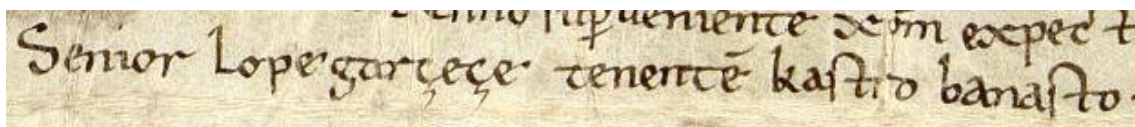 sup̱ueniente expec
Senior lope garçeçe tenentē kastro banasto